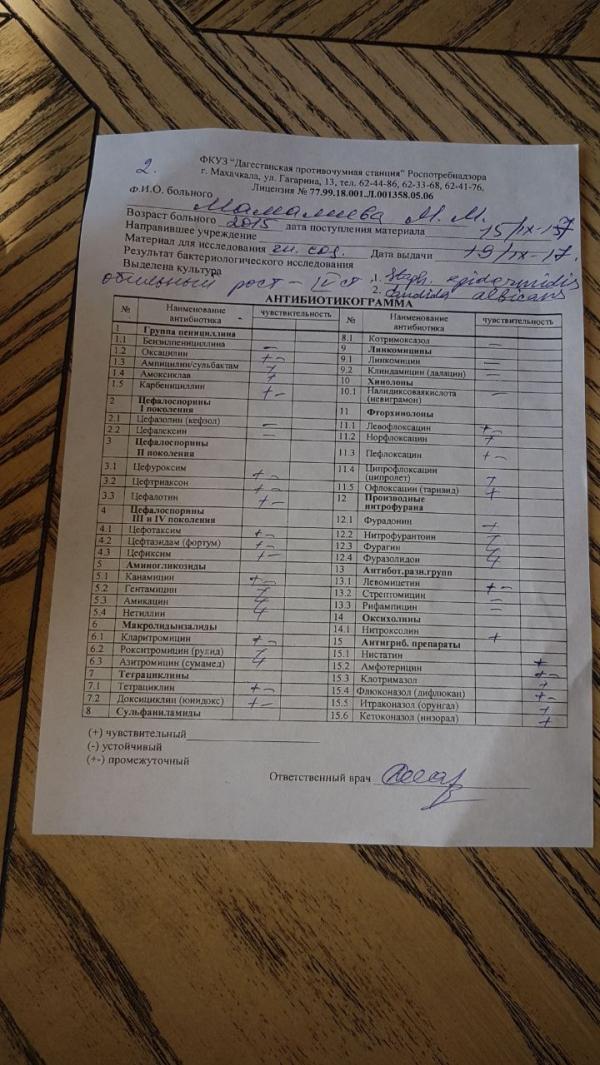 2.
ФКУЗ "Дагестанская противочумная станция" Роспотребнадзора
г. Махачкала, ул. Гагарина, 13, тел. 62-44-86, 62-33-68, 62-41-76,
Лицензия № 77.99.18.001.Л.001358.05.06
Ф.И.О. больного М. М.
Возраст больного 2015 дата поступления материала 15/IX-17
Направившее учреждение
Материал для исследования гн. сод. Дата выдачи 19/IX-17.
Результат бактериологического исследования
Выделена культура 1. Staph. epidermidis
обильный рост - IV ст. 2. Candida albicans
АНТИБИОТИКОГРАММА
№ Наименование антибиотика чувствительность
1 Группа пенициллина
1.1 Бензилпенициллина -
1.2 Оксацилин +-
1.3 Ампицилин/сульбактам +
1.4 Амоксиклав +
1.5 Карбенициллин +-
2 Цефалоспорины I поколения
2.1 Цефазолин (кефзол) -
2.2 Цефалексин -
3 Цефалоспорины II поколения
3.1 Цефуроксим +-
3.2 Цефтриаксон +-
3.3 Цефалотин +-
4 Цефалоспорины III и IV поколения
4.1 Цефотаксим +-
4.2 Цефтазидам (фортум) +-
4.3 Цефиксим +-
5 Аминогликозиды
5.1 Канамицин +-
5.2 Гентамицин +
5.3 Амикацин +
5.4 Нетиллин +
6 Макролидыизалиды
6.1 Кларитромицин +-
6.2 Рокситромицин (рулид) +
6.3 Азитромицин (сумамед) +
7 Тетрациклины
7.1 Тетрациклин +-
7.2 Доксициклин (юнидокс) +-
8 Сульфаниламиды
№ Наименование антибиотика чувствительность
8.1 Котримоксазол -
9 Линкомицины
9.1 Линкомицин -
9.2 Клиндамицин (далацин) -
10 Хинолоны
10.1 Налидиксоваякислота (невиграмон) -
11 Фторхинолоны
11.1 Левофлоксацин +-
11.2 Норфлоксацин +
11.3 Пефлоксацин +-
11.4 Ципрофлоксацин (ципролет) +
11.5 Офлоксацин (таривид) +
12 Производные нитрофурана
12.1 Фурадонин +
12.2 Нитрофурантоин +
12.3 Фурагин +
12.4 Фуразолидон +
13 Антибот.разн.групп
13.1 Левомицетин +-
13.2 Стрептомицин -
13.3 Рифампицин -
14 Оксихолины
14.1 Нитроксолин +
15 Антигриб. препараты
15.1 Нистатин +
15.2 Амфотерицин +-
15.3 Клотримазол +
15.4 Флюконазол (дифлюкан) +-
15.5 Итраконазол (орунгал) +
15.6 Кетоконазол (низорал) +
(+) чувствительный
(-) устойчивый
(+-) промежуточный
Ответственный врач